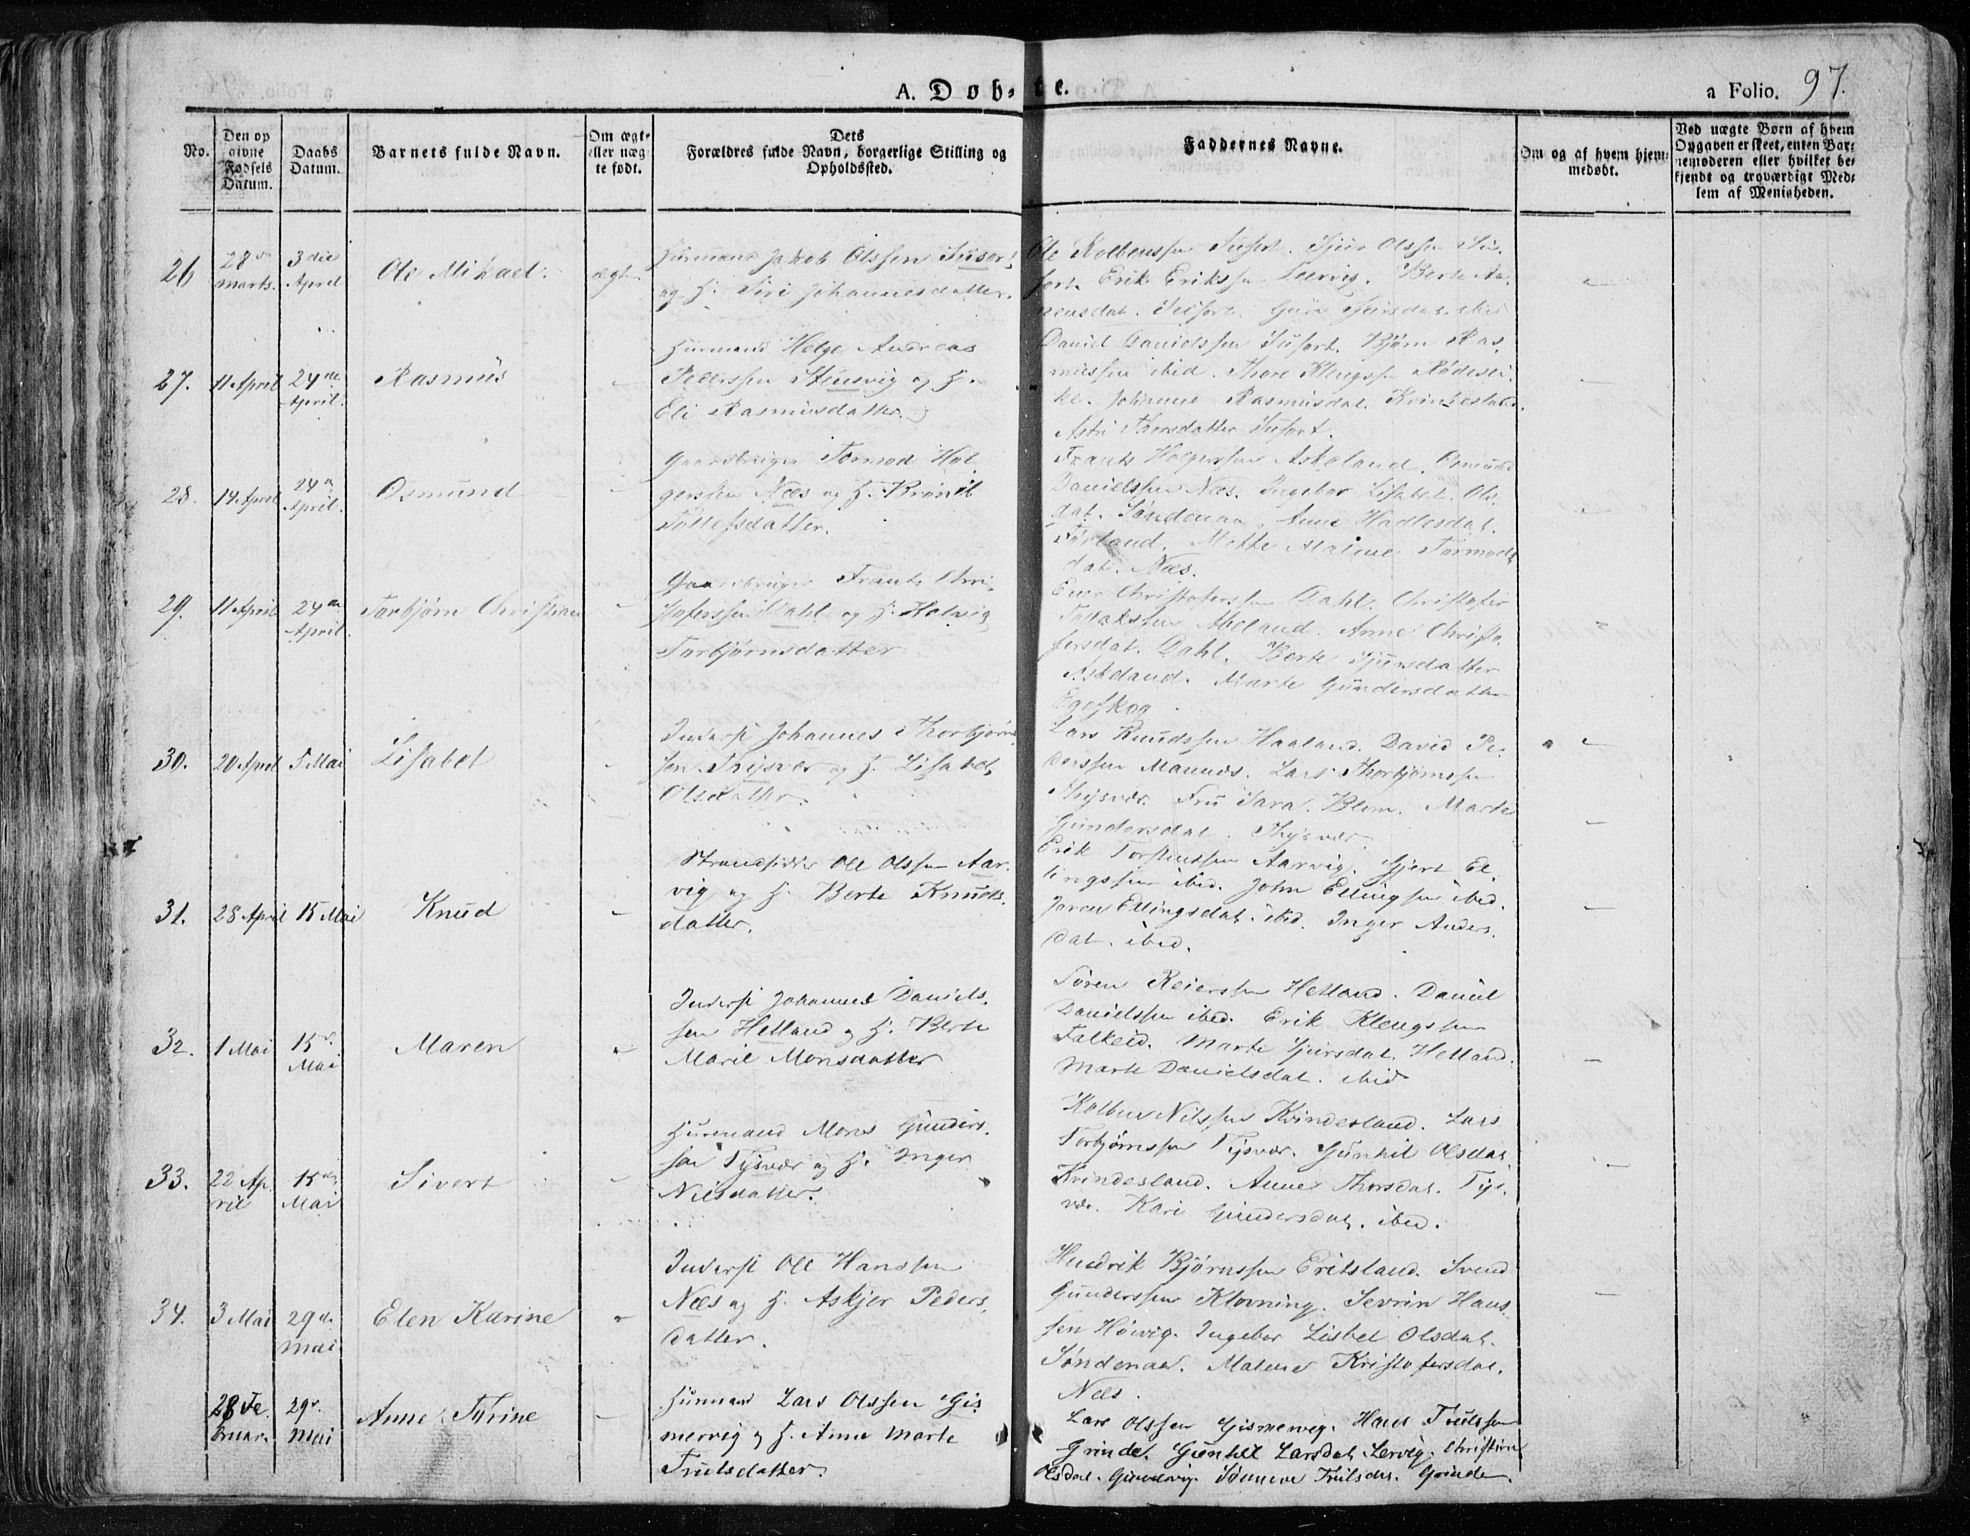 A. Døb-te.
a Folio. 97.
No.
Den op
givne
Fødsels
Datum.
Daabs
Datum.
Barnets fulde Navn.
Om ægt-
eller uæg-
te født.
Dets
Forældres fulde Navn, borgerlige Stilling og
Opholdssted.
Faddernes Navne.
Om og af hvem hjem-
medøbt.
Ved uægte Børn af hvem
Opgaven er skeet, enten Bar-
nemoderen eller hvilket be-
kjendt og troværdigt Med-
lem af Menigheden.
26
28de
Marts.
3die
April
Ole Mikael.
ægte
Huusmand Jakob Olssen
og H. Siri Johannesdatter.
Ole Kolbenssen Sjur Olssen
Erik Erikssen Leervig. Berte
27.
11 April
24de
April.
Rasmus
Huusmand Helge Andreas
Pederssen Stensvig og H.
Eli Rasmusdatter.
David Danielssen Bjørn Ras-
mussen ibid. Thore Klengssen
Johanne Rasmusdat.
Astri Thorsdatter
28.
14 April
24de
April.
Osmund
Gaardbruger Tormod Hol-
gerssen Næs og H. Brønil
Tollefsdatter.
Frants Holgerssen Askeland. Osmund
Danielssen Næs. Ingebor Lisabet Ols-
dat. Søndenaa. Anne Hadlesdat.
Førland. Mette Malene Tormods-
dat. Næs.
29.
11 April
24de
April.
Torbjørn Christian
Gaardbruger Frants Chri-
stoferssen Dahl og H. Helvig
Torbjørnsdatter
Christoferssen Dahl. Christofer
Apeland. Anne Christo-
fersdat. Dahl. Berte Sjursdatter
Askeland. Marte Gundersdatter
30.
20 April
5 Mai
Lisabet
Inderst Johannes Thorbjørn-
sen Tysver og H. Lisabet
Olsdatter.
Lars Knudssen Haaland. David Pe-
derssen Lars Thorbjørnssen
Thysvær. Fru Sara Blom. Marte
Gundersdat. Thysvær.
31.
28 April
15 Mai
Knud
Strandsidder Ole Olssen Aar-
vig og H. Berte Knuds-
datter.
Erik Torstenssen Aarvig. Gjert El-
lingssen ibid. John Ellingssen ibid.
Joren Ellingsdat. ibid. Inger Anders-
dat. ibid.
32.
1 Mai
15de
Mai
Maren
Inderst Johannes Daniels-
sen Hetland og H. Berte
Marie Monsdatter
Søren Reierssen Hetland. Daniel
Danielssen ibid. Erik Klengssen
Falkeid. Marte Sjursdat. Hetland.
Marte Danielsdat. ibid
33.
22 Ap-
ril
15de
Mai
Sivert
Huusmand Mons Gunders-
sen Tysvær og H. Inger
Nilsdatter.
Kolben Nilssen Kvindesland. Lars
Torbjørnssen Tysvær. Gunhil Olsdat.
Kvindesland. Anne Thorsdat. Tys-
vær. Kari Gundersdat. ibid.
34.
3 Mai
29de
Mai
Elen Karine
Inderst Ole Hanssen
Næs og H. Askjer Peders-
datter.
Hendrik Bjørnssen Eritsland. Svend
Gunderssen Klovning. Sevrin Hans-
sen Høivig. Ingebor Lisbet Olsdat.
Søndenaa. Malene Kristofersdat.
Næs.
28 Fe-
bruar.
29de
Mai
Anne Tyrine
Huusmand Lars Olssen Gis-
mervig og H. Anne Marte
Trulsdatter.
Lars Olssen Gismervig. Hans Trulssen
Grinde. Gunhil Larsdat. Lervig. Christine
Olsdat. Sønneve Trulsdat. Grinde.